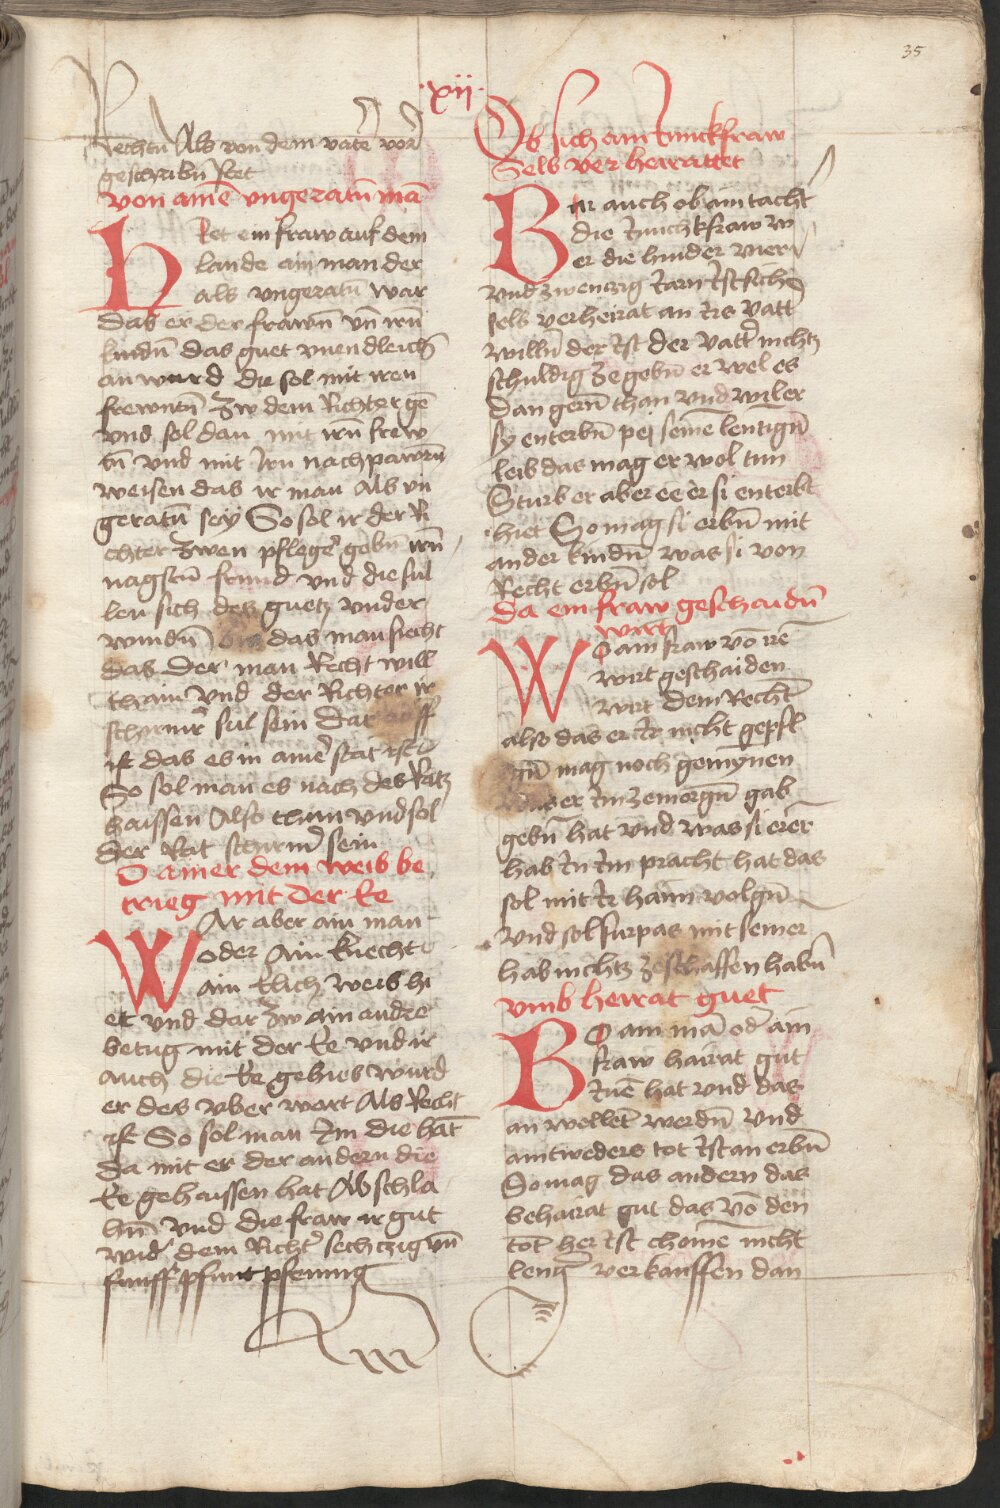 35
xij
Rechtn̄ Als von dem vatē vor
geschribn̄ stet
von amē vngeratn̄ mā
Het ein fraw auf dem
lande ain man der
als vngeratn̄ war
das er der frawn̄ vn̄ irn̄
kindn̄ das guet vnendleich
an wurd die sol mit iren
frewntn̄ zw dem Richter gē
vnd sol dan mit irn̄ frew
tn̄ vnd mit irn nachpawrn̄
weisen das ir man Als vn
geratn̄ sey So sol ir der Ri
chter zwen pfleger gebn̄ irn̄
nagstn̄ frund vnd die sul
len sich des guetz vnder
windn̄ das man siecht
das der man Recht will
thain vnd der Richter ir
schermr̄ sul sein dar auff
ist das es in amēr stat ist
So sol man es nach des Ratz
haissen Also thun vnd sol
der Rat schermr̄ sein
Da ainer dem weib be
trieg mit der Ee
War aber ain man
oder Ain knecht
ain Elich weib hi
et vnd dar zw ain andre
betrug mit der Ee vnd ir
auch die Ee gehies wurd
er des vber wert Als Recht
ist So sol man Im die hāt
da mit er der andern die
Ee gehaissen hat Ab schla
hn̄ vnd die fraw ir gut
wider dem Richtr̄ sechczig vn̄
funff pfunt pfening
Ob sich ain Junckfraw
Selb ver heirattet
Wir auch ob ain tacht
die Junchkfraw w
er die hinder vier
vnd zwenczig Jarn Ist sich
selb verheirat an Irs vattr̄
willn̄ der Ist der vattr̄ nichtz
schuldig ze gebn̄ er wel es
dan gern̄ than vnd wil er
sy enterbn̄ pej seinē lentign̄
leib das mag er wol tun
Sturb er aber ee er si enterbt
hiet So mag si erbn̄ mit
ander kindn̄ was si von
Recht erbn̄ sol
da ein fraw geschaidn̄
wirt
Wo ain fraw vō irē
wirt geschaiden
wirt dem Recht
also das er Ir nicht gepfl
egn̄ mag noch gemynen
was er Im ze morgn̄ gab
gebn̄ hat vnd was si erer
hab In Im pracht hat das
sol mit Ir haim volgn̄
vnd sol furpas mit seiner
hab nichtz ze schaffen habn̄
vmb heirat guet
Wo ain mā oder ain
fraw hairat gut
Inē hat vnd das
an wellet werdn̄ vnd
aintweders tot Ist an erbn̄
So mag das andern das
behairat gut das vō den
tot her Ist chomē nicht
lengr̄ verkauffen dan